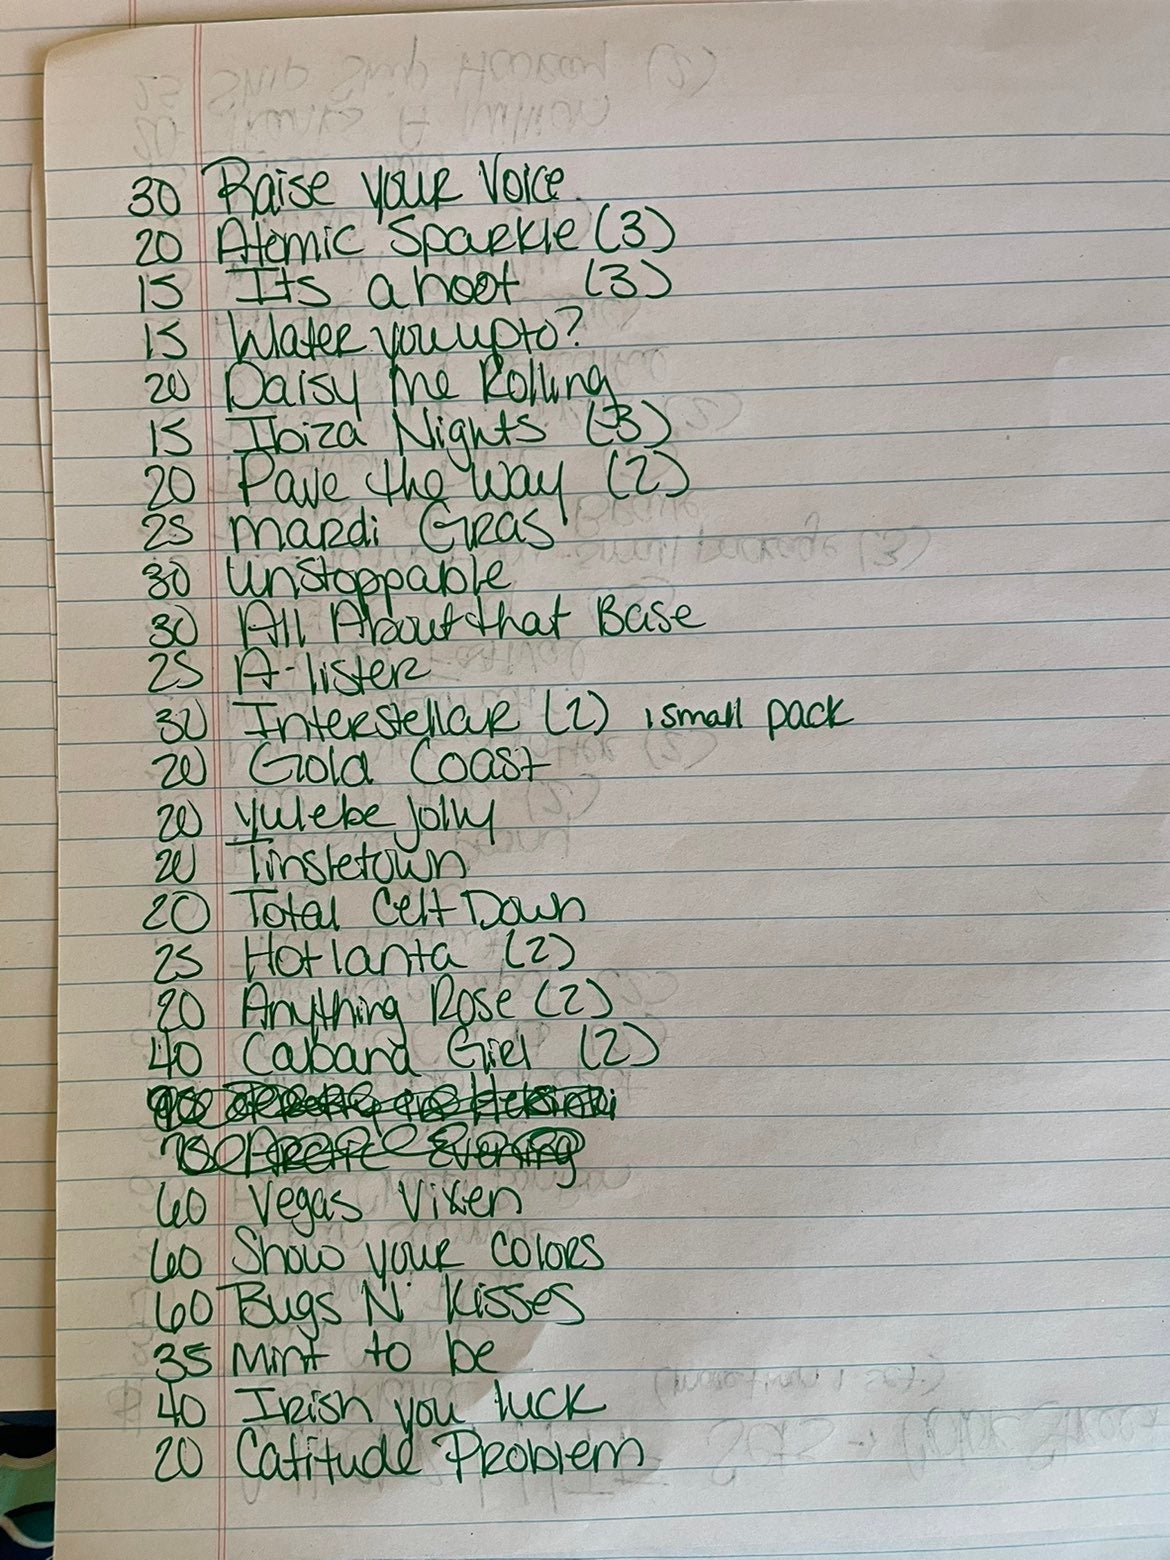 30 Raise your Voice
20 Atomic Sparkle (3)
15 Its a hoot (3)
15 Water you up to?
20 Daisy me Rolling
15 Ibiza Nights (3)
20 Pave the Way (2)
25 Mardi Gras
30 Unstoppable
30 All About that Base
25 A-lister
30 Interstellar (2) 1 small pack
20 Gold Coast
20 Yule be Jolly
20 Tinsletown
20 Total Celt Down
25 Hotlanta (2)
20 Anything Rose (2)
40 Cabana Girl (2)
60 Vegas Vixen
60 Show your colors
60 Bugs N' Kisses
35 Mint to be
40 Irish you luck
20 Catitude Problem